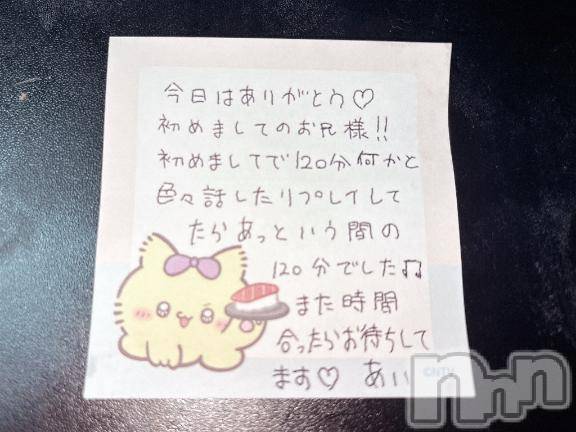 今日はありがとう♡
初めましてのお兄様!!
初めましてで120分何かと
色々話したりプレイして
たらあっという間の
120分でした♫
また時間
合ったらお待ちして
ます♡ あい
©NTV
nnn